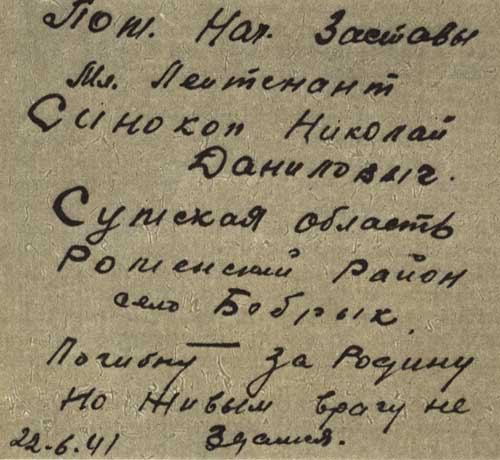 Пом. Нач. Заставы
Мл. Лейтенант
Синокоп Николай
Данилович.
Сумская область
Роменский район
село Бобрык.
Погибну — за Родину
Но живым врагу не
22.6.41 Здамся.